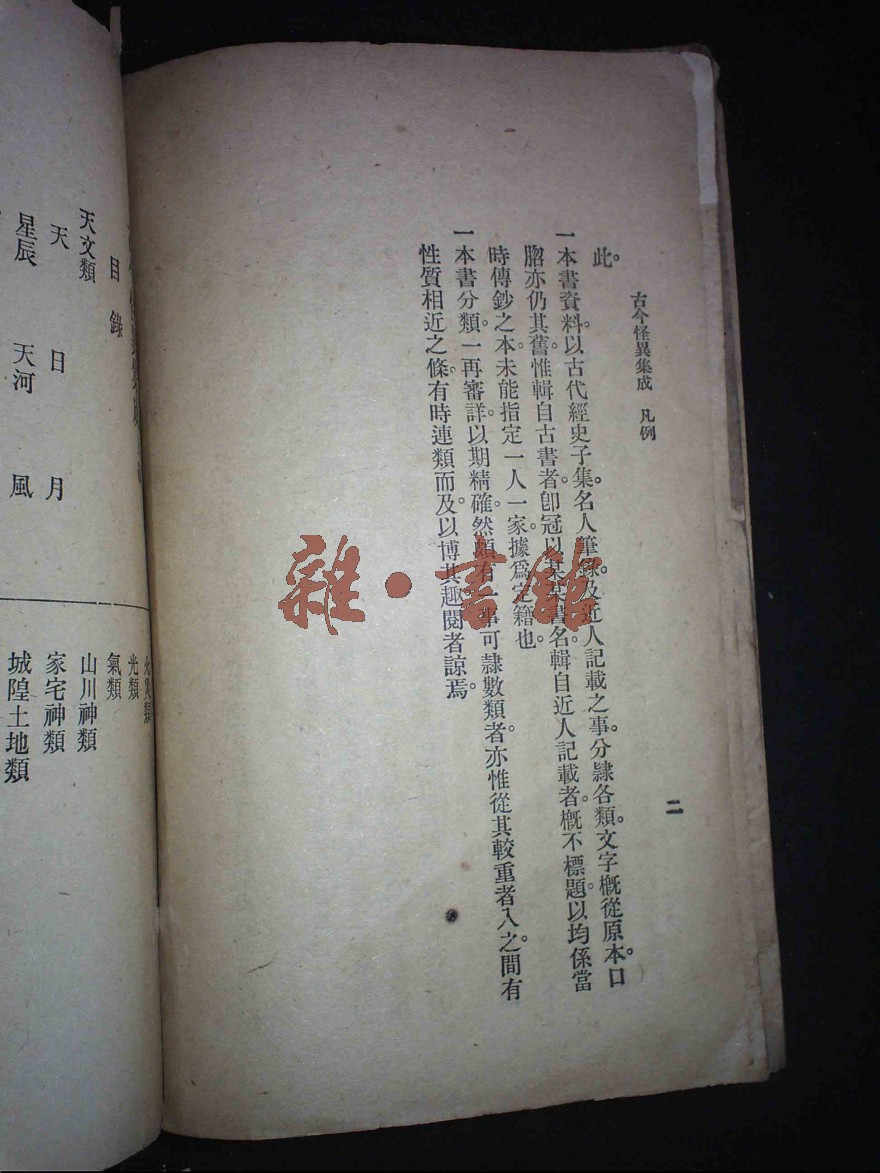 古今怪異集成　凡例
二
此。
一本書資料。以古代經史子集。名人筆錄。及近人記載之事。分隸各類。文字槪從原本。口
脗亦仍其舊。惟輯自古書者。卽冠以某某書名。輯自近人記載者。槪不標題。以均係當
時傳鈔之本。未能指定一人一家。據爲定籍也。
一本書分類。一再審詳。以期精確。然頗有一事可隸數類者。亦惟從其較重者入之。間有
性質相近之條。有時連類而及。以博其趣。閱者諒焉。
雜·書館
目錄
天文類
天　日　月
星辰　天河　風
火災類
光類
氣類
山川神類
家宅神類
城隍土地類